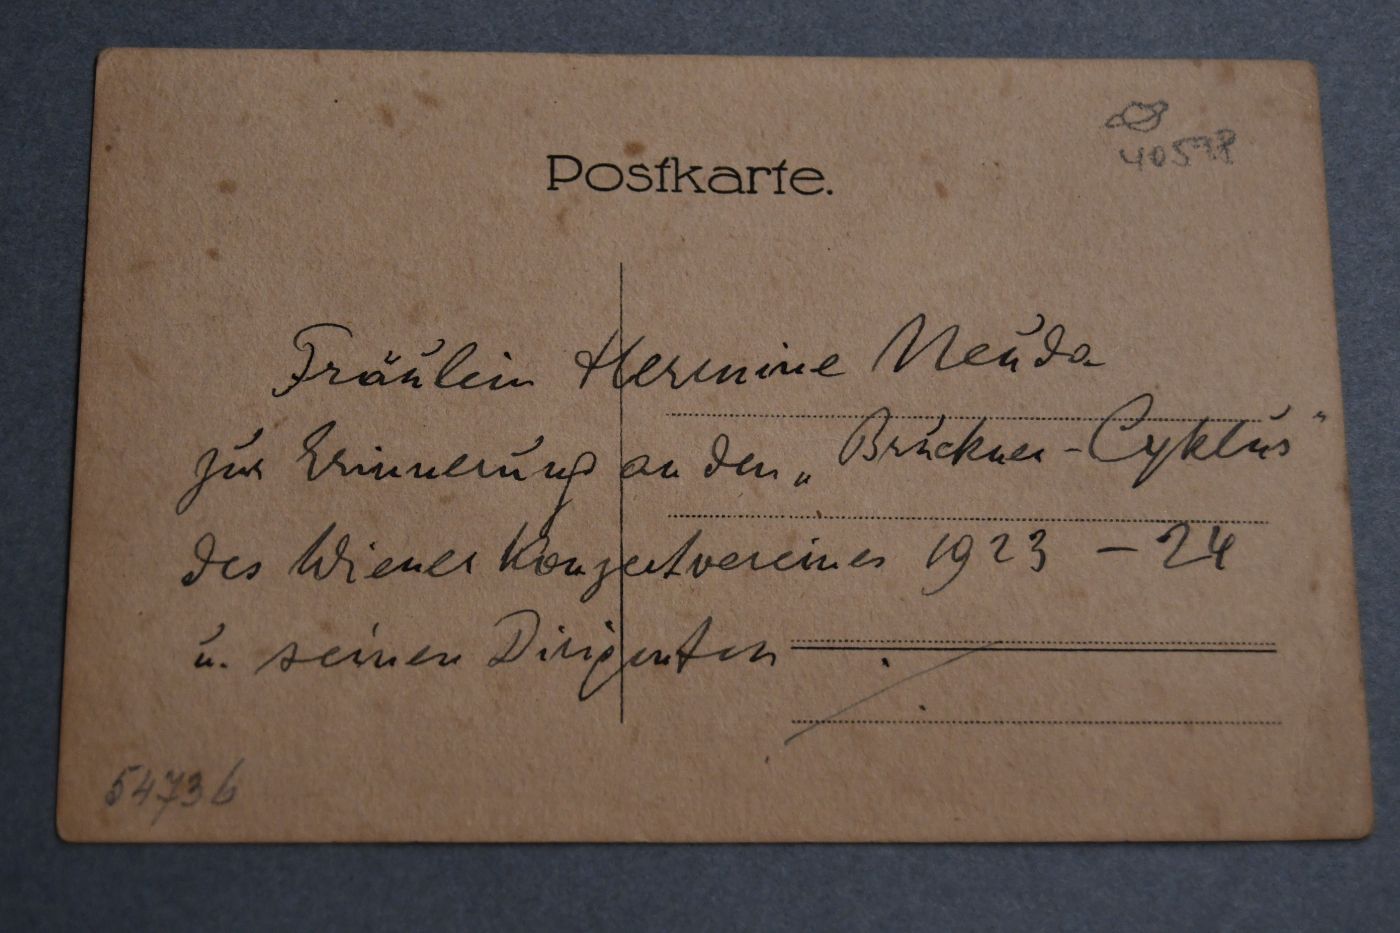 Postkarte.
Fräulein Hermine Neuda
zur Erinnerung an den „Bruckner-Cyklus“
des Wiener Konzertvereines 1923 – 24
u. seinen Dirigenten
54736